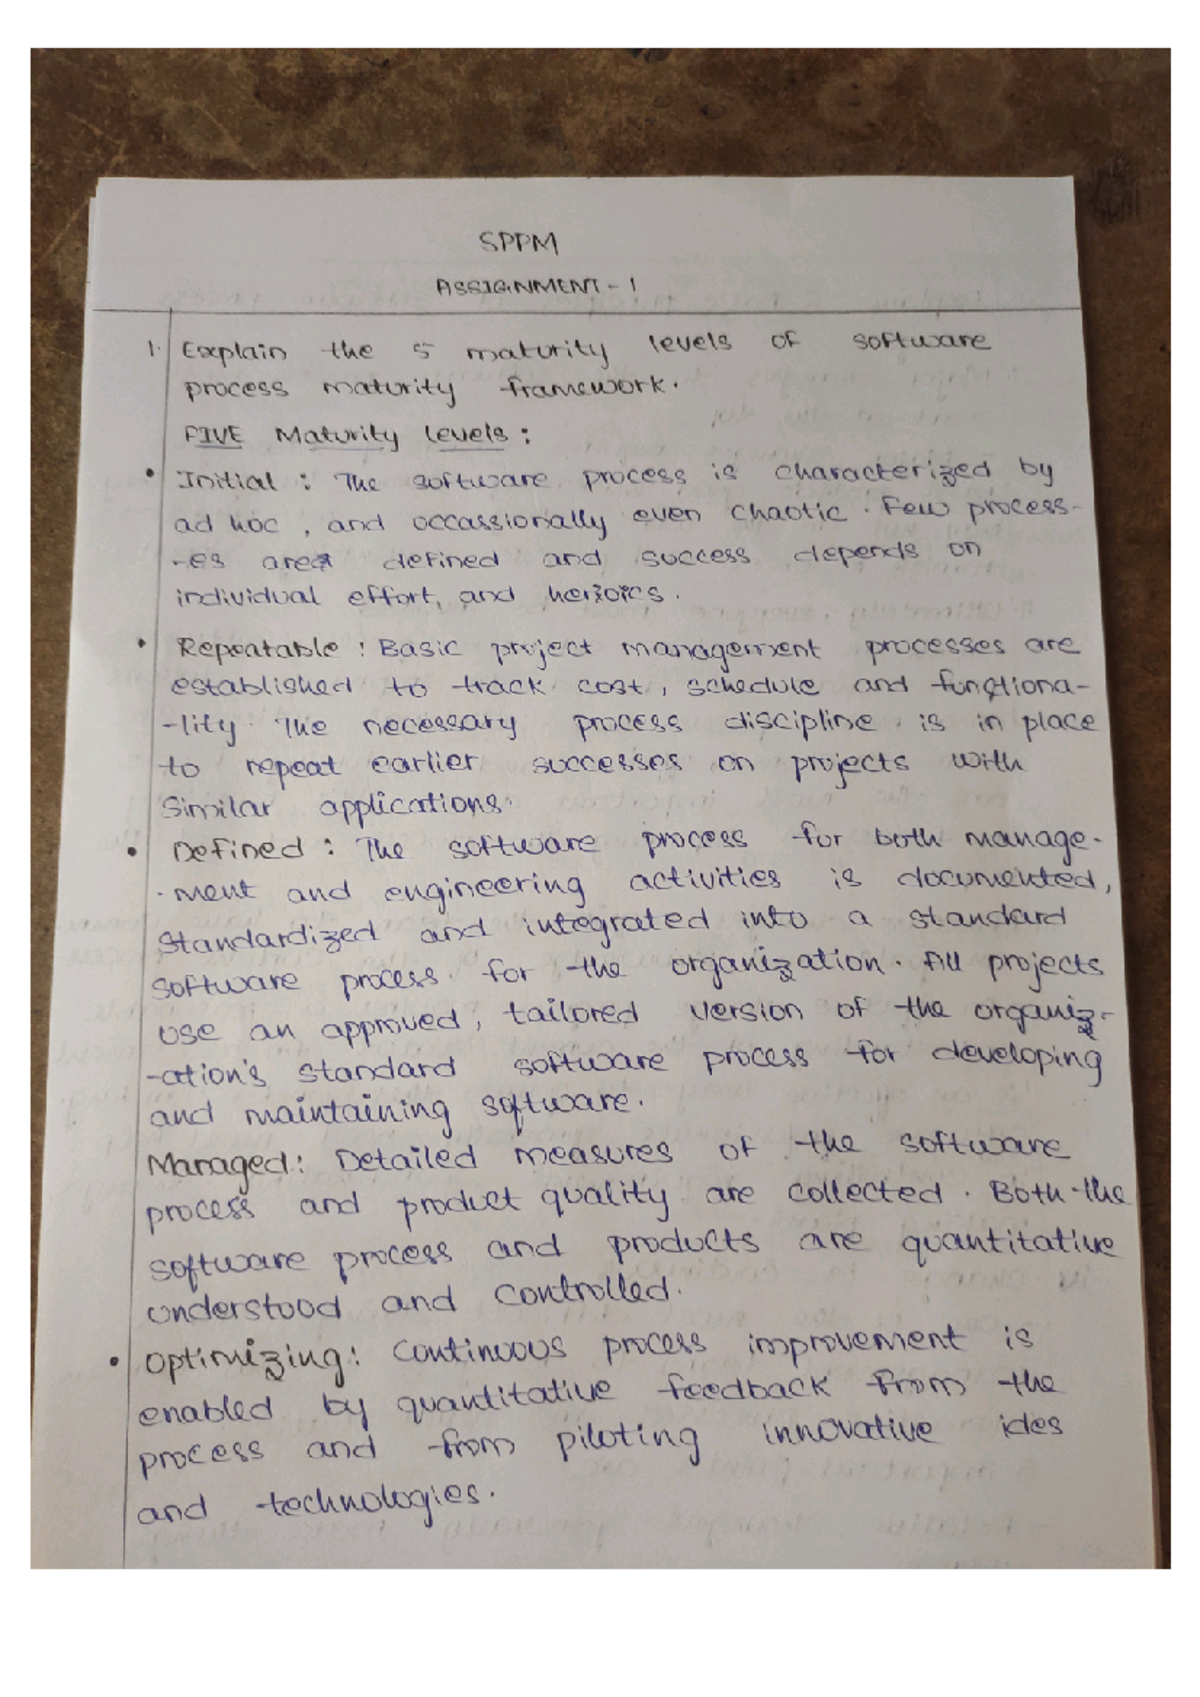 SPPM
ASSIGNMENT - 1
1. Explain the 5 maturity levels of software
process maturity framework.
FIVE Maturity levels :
• Initial : The software process is characterized by
ad hoc , and occassionally even chaotic . Few process-
-es are defined and success depends on
individual effort, and heroics .
• Repeatable : Basic project management processes are
established to track cost , schedule and functiona-
-lity . The necessary process discipline is in place
to repeat earlier successes on projects with
Similar applications.
• Defined : The software process for both manage-
-ment and engineering activities is documented,
Standardized and integrated into a standard
software process for the organization. All projects
use an approved, tailored version of the organiz-
-ation's standard software process for developing
and maintaining software.
Managed: Detailed measures of the software
process and product quality are collected . Both the
software process and products are quantitative
understood and controlled.
• Optimizing: Continuous process improvement is
enabled by quantitative feedback from the
process and from piloting innovative ides
and technologies.